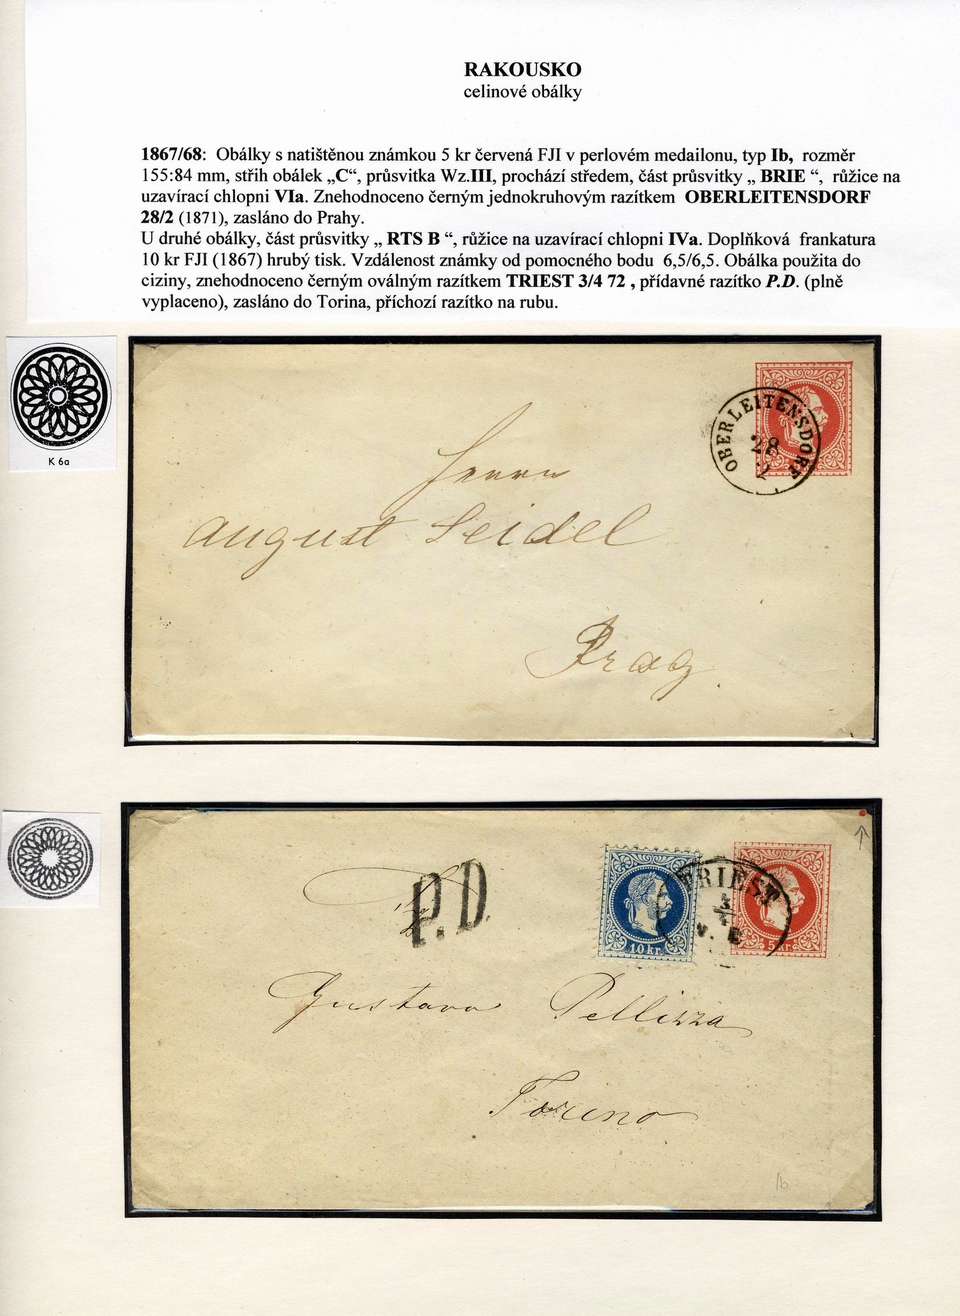 RAKOUSKO
celinové obálky
1867/68: Obálky s natištěnou známkou 5 kr červená FJI v perlovém medailonu, typ Ib, rozměr
155:84 mm, střih obálek „C“, průsvitka Wz.III, prochází středem, část průsvitky „ BRIE “, růžice na
uzavírací chlopni VIa. Znehodnoceno černým jednokruhovým razítkem OBERLEITENSDORF
28/2 (1871), zasláno do Prahy.
U druhé obálky, část průsvitky „ RTS B “, růžice na uzavírací chlopni IVa. Doplňková frankatura
10 kr FJI (1867) hrubý tisk. Vzdálenost známky od pomocného bodu 6,5/6,5. Obálka použita do
ciziny, znehodnoceno černým oválným razítkem TRIEST 3/4 72 , přídavné razítko P.D. (plně
vyplaceno), zasláno do Torina, příchozí razítko na rubu.
K 6a
OBERLEITENSDORF
28
2
Herrn
August Seidel
Prag
P.D.
10 kr.
TRIEST
3
4
V. E
5 kr.
Gustavo Pellizza
Torino
1b